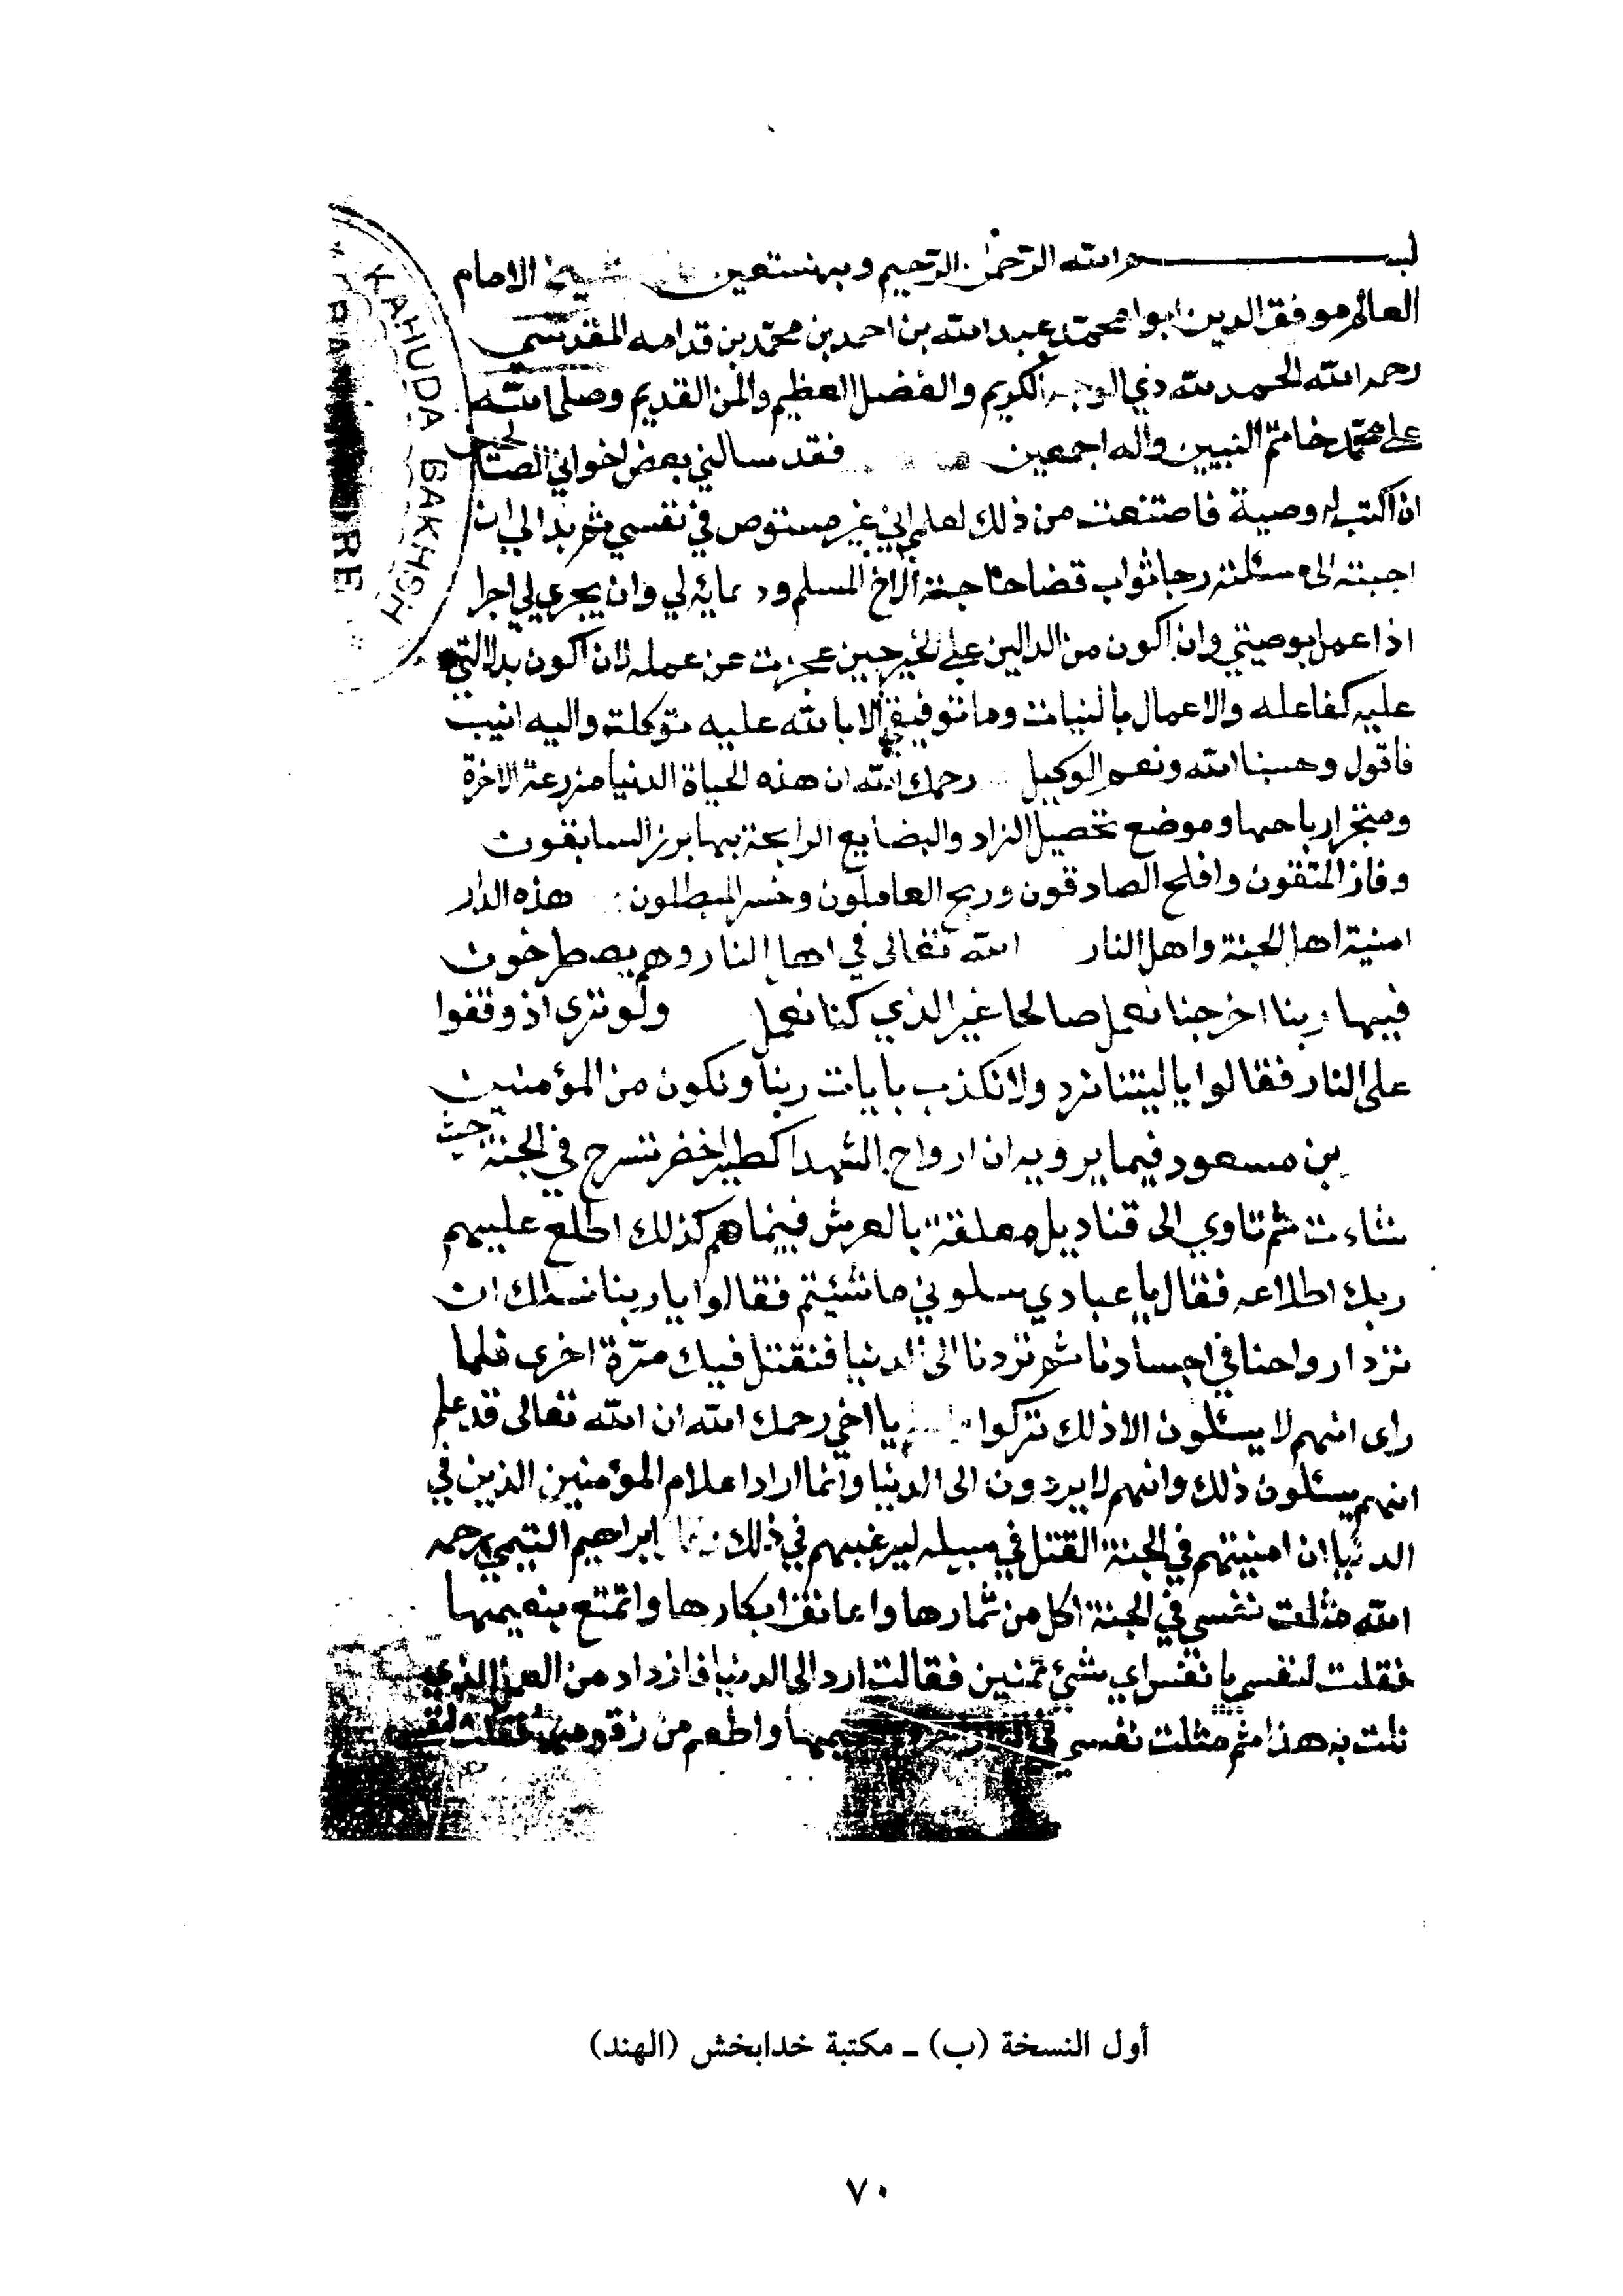 بسم الله الرحمن الرحيم وبه نستعين الشيخ الامام
العالم موفق الدين ابو محمد عبد الله بن احمد بن محمد بن قدامه المقدسي
رحمه الله الحمد لله ذي الوجه الكريم والفضل العظيم والمن القديم وصلى الله
على محمد خاتم النبيين واله اجمعين فقد سالني بعض اخواني الصالحين
ان اكتب له وصية فامتنعت من ذلك لعلمي اني غير مستوص في نفسي ثم بدا لي ان
اجبته الى مسئلته رجا ثواب قضا حاجة الاخ المسلم ود عايه لي وان يجري لي اجرا
اذا عمل بوصيتي وان اكون من الدالين على الخير حين عجزت عن عمله لان اكون بدلالتي
عليه كفاعله والاعمال بالنيات وما توفيقي الا بالله عليه توكلت واليه انيب
فاقول وحسبنا الله ونعم الوكيل رحمك الله ان هذه الحياة الدنيا مزرعة الاخرة
ومتجر ارباحها وموضع تحصيل الزاد والبضايع الرابحة بها برز السابقون
وفاز المتقون وافلح الصادقون وربح العاملون وخسر المبطلون هذه الدار
امنية اهل الجنة واهل النار الله تعالى في اهل النار وهم يصطرخون
فيها ربنا اخرجنا نعمل صالحا غير الذي كنا نعمل ولو ترى اذ وقفوا
على النار فقالوا يا ليتنا نرد ولا نكذب بايات ربنا ونكون من المؤمنين
بن مسعود فيما يرويه ان ارواح الشهدا كطير خضر تسرح في الجنة حيث
شاءت ثم تاوي الى قناديل معلقة بالعرش فبينما هم كذلك اطلع عليهم
ربك اطلاعه فقال يا عبادي سلوني ما شئتم فقالوا يا ربنا نسالك ان
ترد ارواحنا في اجسادنا ثم تردنا الى الدنيا فنقتل فيك مرة اخرى فلما
راى انهم لا يسئلون الا ذلك تركوا يا اخي رحمك الله ان الله تعالى قد علم
انهم يسئلون ذلك وانهم لا يردون الى الدنيا وانما اراد اعلام المؤمنين الذين في
الدنيا ان امنيتهم في الجنة القتل في سبيله ليرغبهم في ذلك ابراهيم التيمي رحمه
الله مثلت نفسي في الجنة اكل من ثمارها واعانق ابكارها واتمتع بنعيمها
فقلت لنفسي يا نفس اي شئ تمنين فقالت ارد الى الدنيا فازداد من العمل الذي
نلت به هذا ثم مثلت نفسي في النار واطعم من زقومها فقلت لنفسي
KAHUDA BAKHSH
أول النسخة (ب) ــ مكتبة خدابخش (الهند)
٧٠